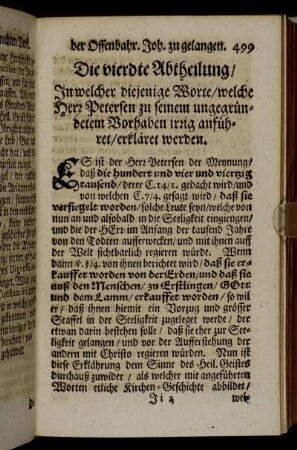 der Offenbahr. Joh. zu gelangen. 499
Die vierdte Abtheilung/
In welcher diejenige Worte/welche
Herr Petersen zu seinem ungegrün-
detem Vorhaben irrig anfüh-
ret/erkläret werden.
ES ist der Herr Petersen der Meynung/
daß die hundert und vier und viertzig
tausend/ derer C. 14/1. gedacht wird/und
von welchen C. 7/4. gesagt wird/ daß sie
versiegelt worden/ solche Leute seyn/welche von
nun an und alsobald in die Seeligkeit eingiengen/
und die der HErr im Anfang der tausend Jahre
von den Todten aufferwecken/und mit ihnen auff
der Welt sichtbarlich regieren würde. Wenn
dann v. 3/4. von ihnen berichtet wird/ daß sie er-
kauffet worden von der Erden/und daß sie
auß den Menschen/ zu Erstlingen/ GOtt
und dem Lamm/ erkauffet worden/ so wil
er/ daß ihnen hiemit ein Vorzug und grösser
Staffel in der Seeligkeit zugeleget werde/ der
etwan darin bestehen solle/ daß sie eher zur See-
ligkeit gelangen/ und vor der Aufferstehung der
andern mit Christo regieren würden. Nun ist
diese Erklährung dem Sinne des Heil. Geistes
durchauß zuwider/ als welcher mit angeführten
Worten etliche Kirchen-Geschichte abbildet/
Ji 2